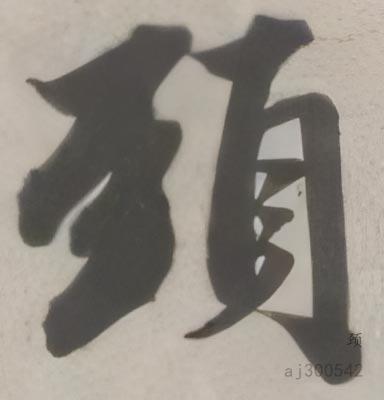 頸
颈
aj300542